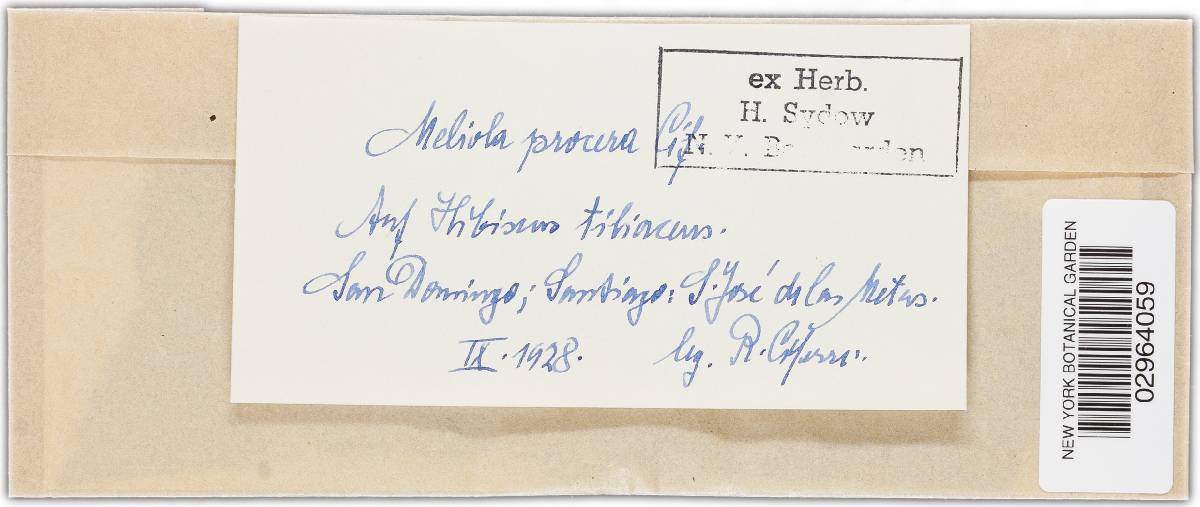 ex Herb.
H. Sydow
N. Y. Bot. Garden
Meliola procera Cif
Auf Hibiscus tiliaceus.
San Domingo; Santiago: S. José de las Metas.
IX. 1928. leg. R. Ciferri.
NEW YORK BOTANICAL GARDEN
02964059